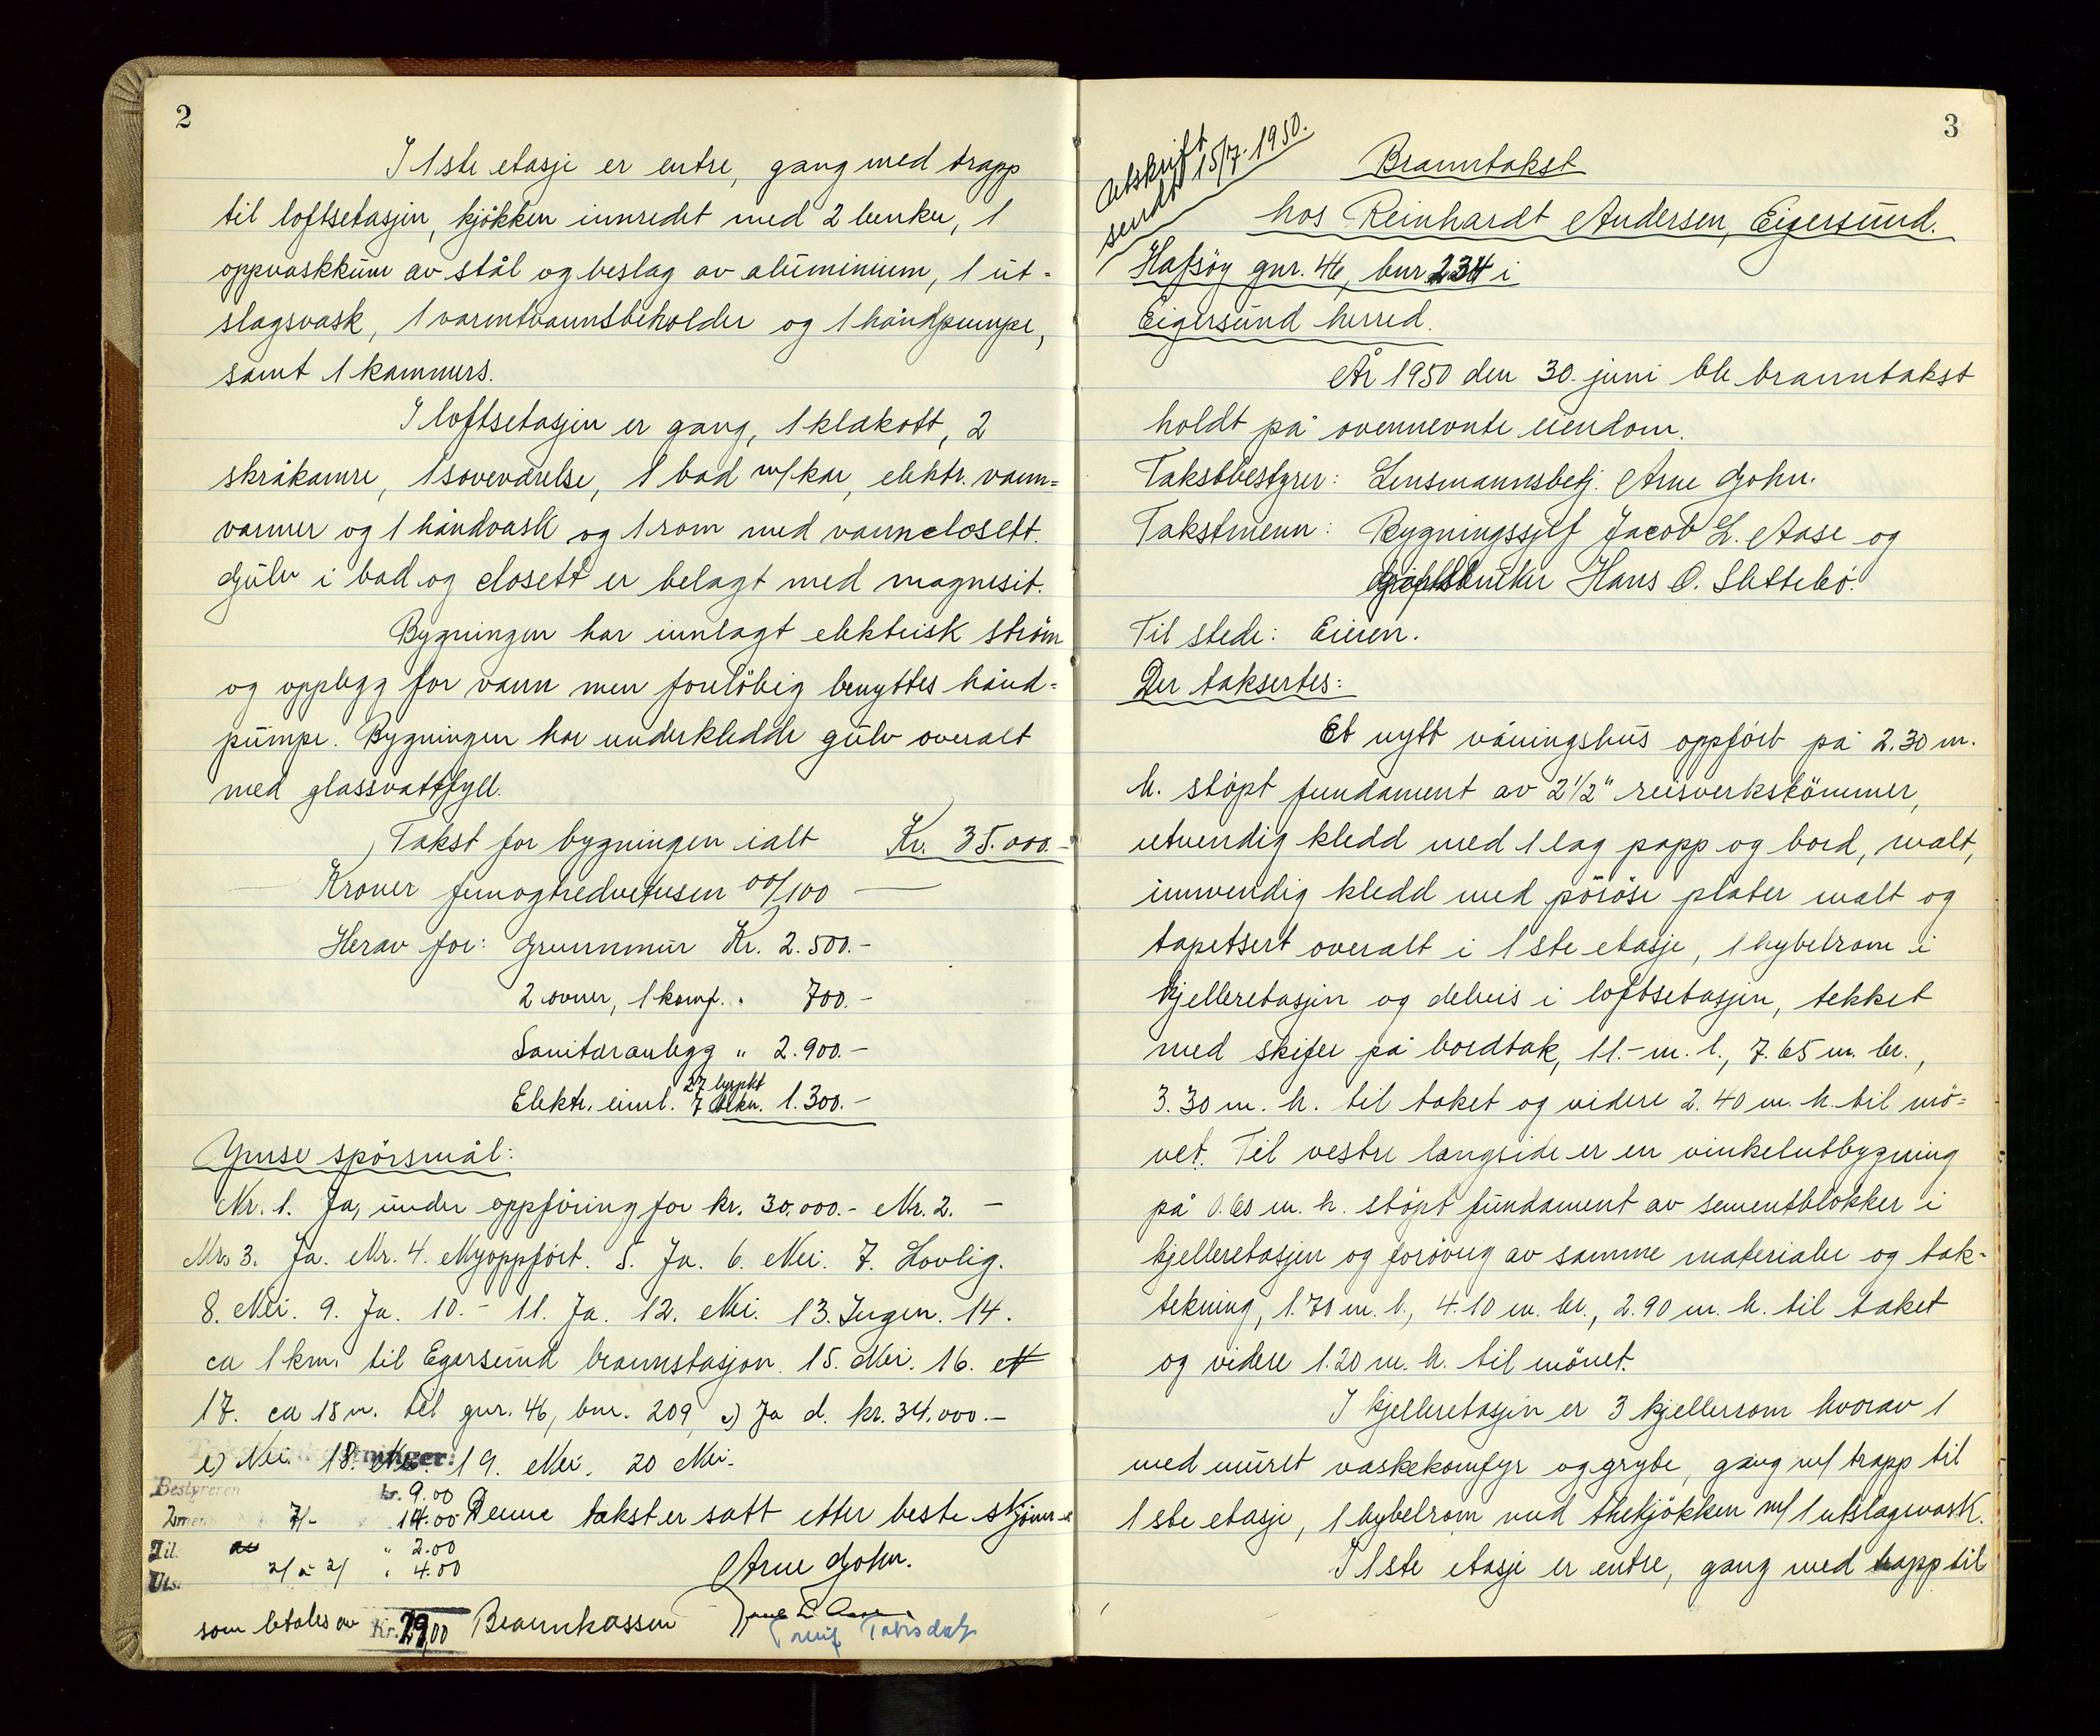 2
I 1ste etasje er entre, gang med trapp
til loftsetasjen, kjökken innredet med 2 benker, 1
oppvaskkum av stål og beslag av aluminium, 1 ut-
slagsvask, 1 varmtvannsbeholder og 1 håndpumpe,
samt 1 kammers.
I loftsetasjen er gang, 1 klekott, 2
skråkamre, 1 soveværelse, 1 bad m/kar, elektr. vann-
varmer og 1 håndvask og 1 rom med vannclosett.
Gulv i bad og closett er belagt med magnesit.
Bygningen har innlagt elektrisk ström
og opplegg for vann men forelöbig benyttes hånd-
pumpe. Bygningen har underkledde gulv overalt
med glassvattfyll.
Takst for bygningen ialt Kr. 35.000.-
Kroner femogtredvetusen 00/100
Herav for: Grunnmur Kr. 2.500.-
2 ovner, 1 komf. " 700.-
Sanitæranlegg " 2.900.-
27 lyspkt
Elektr. innl. 7 1.300.-
Ymse spörsmål:
Nr. 1. Ja, under oppföring for kr. 30.000.- Nr. 2. -
Nr. 3. Ja. Nr. 4. Nyoppfört. 5. Ja. 6. Nei. 7. Lovlig.
8. Nei. 9. Ja. 10. - 11. Ja. 12. Nei. 13. Ingen. 14.
ca 1 km. til Egersund brannstasjon. 15. Nei. 16.
17. ca 18 m. til gnr. 46, bnr. 209, c) Ja d. kr. 34.000.-
e) Nei. 18. Nei. 19. Nei. 20 Nei.
Bestyreren kr. 9.00
2 menn 7/- 14.00 Denne takst er satt etter beste skjönn
Til. " 2.00
Uts. 2/ a 2/ " 4.00 Arne Gohn.
som betales av Kr. 29,00 Brannkassen
3
Utskrift
sendt 15/7-1950.
Branntakst
hos Reinhardt Andersen, Eigersund.
Hafsöy gnr. 46, bnr 234 i
Eigersund herred.
År 1950 den 30. juni ble branntakst
holdt på ovennevnte eiendom.
Takstbestyrer: Lensmannsbetj. Arne Gohn.
Takstmenn: Bygningssjef Jacob L. Aase og
Hans O. Slettebö.
Til stede: Eieren.
Der taksertes:
Et nytt våningshus oppfört på 2.30 m.
h. stöpt fundament av 2 1/2" reisverkstömmer,
utvendig kledd med 1 lag papp og bord, malt,
innvendig kledd med poröse plater malt og
tapetsert overalt i 1 ste etasje, 1 hybelrom i
kjelleretasjen og delvis i loftsetasjen, tekket
med skifer på bordtak, 11.- m. l., 7.65 m. br.,
3.30 m. h. til taket og videre 2.40 m. h. til mö-
net. Til vestre langside er en vinkelutbygning
på 0.60 m. h. stöpt fundament av sementblokker i
kjelleretasjen og forövrig av samme materialer og tak-
tekning, 1.70 m. l., 4.10 m. br., 2.90 m. h. til taket
og videre 1.20 m. h. til mönet.
I kjelleretasjen er 3 kjellerrom hvorav 1
med muret vaskekomfyr og gryte, gang m/ trapp til
1 ste etasje, 1 hybelrom med thekjökken m/ 1 utslagsvask.
I 1ste etasje er entre, gang med trapp til